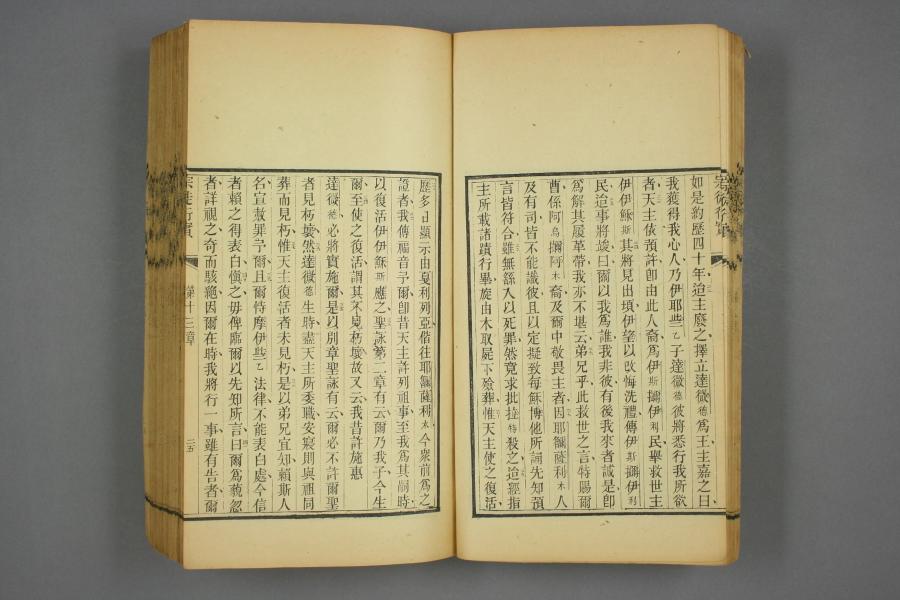 如是約歷四十年迨主廢之擇立達微德爲王主嘉之曰
我獲得我心人乃伊耶些乙子達微德彼將悉行我所欲
者天主依預許卽由此人裔爲伊斯攝伊利民舉救世主
伊伊穌斯其將見出頃伊望以改悔洗禮傳伊斯攝伊利
民迨事將竣曰爾以我爲誰我非彼有後我來者誠是卽
爲解其履革帶我亦不堪云弟兄乎此救世之言特賜爾
曹係阿烏攝阿木裔及爾中敬畏主者因耶嚕薩利木人
及有司皆不能識彼且以定擬致每穌博他所誦先知預
言皆符合雖無繇人以死罪然寬求批拉特殺之迨經指
主所載諸蹟行畢旋由木取屍下殮葬惟天主使之復活
歷多日顯示由戛利列亞偕往耶嚕薩利木今衆前爲之
證者我傳福音予爾卽昔天主許列祖事至我爲其嗣時
以復活伊伊穌斯應之聖詠第二章有云爾乃我子今生
爾至使之復活謂其不見朽壞故又云我昔許施惠
達微德必將實施爾是以別章聖詠有云爾必不許爾聖
者見朽壞然達微德生時盡天主所委職安寢則與祖同
葬而見朽惟天主復活者未見朽是以弟兄宜知賴斯人
名宣赦罪予爾且爾恃摩伊些乙法律不能表白處今信
者賴之得表白愼之毋俾席爾以先知所言曰爾爲藐忽
者詳視之奇而駭絕因爾在時我將行一事雖有告者爾
宗徒行實
第十三章
二五